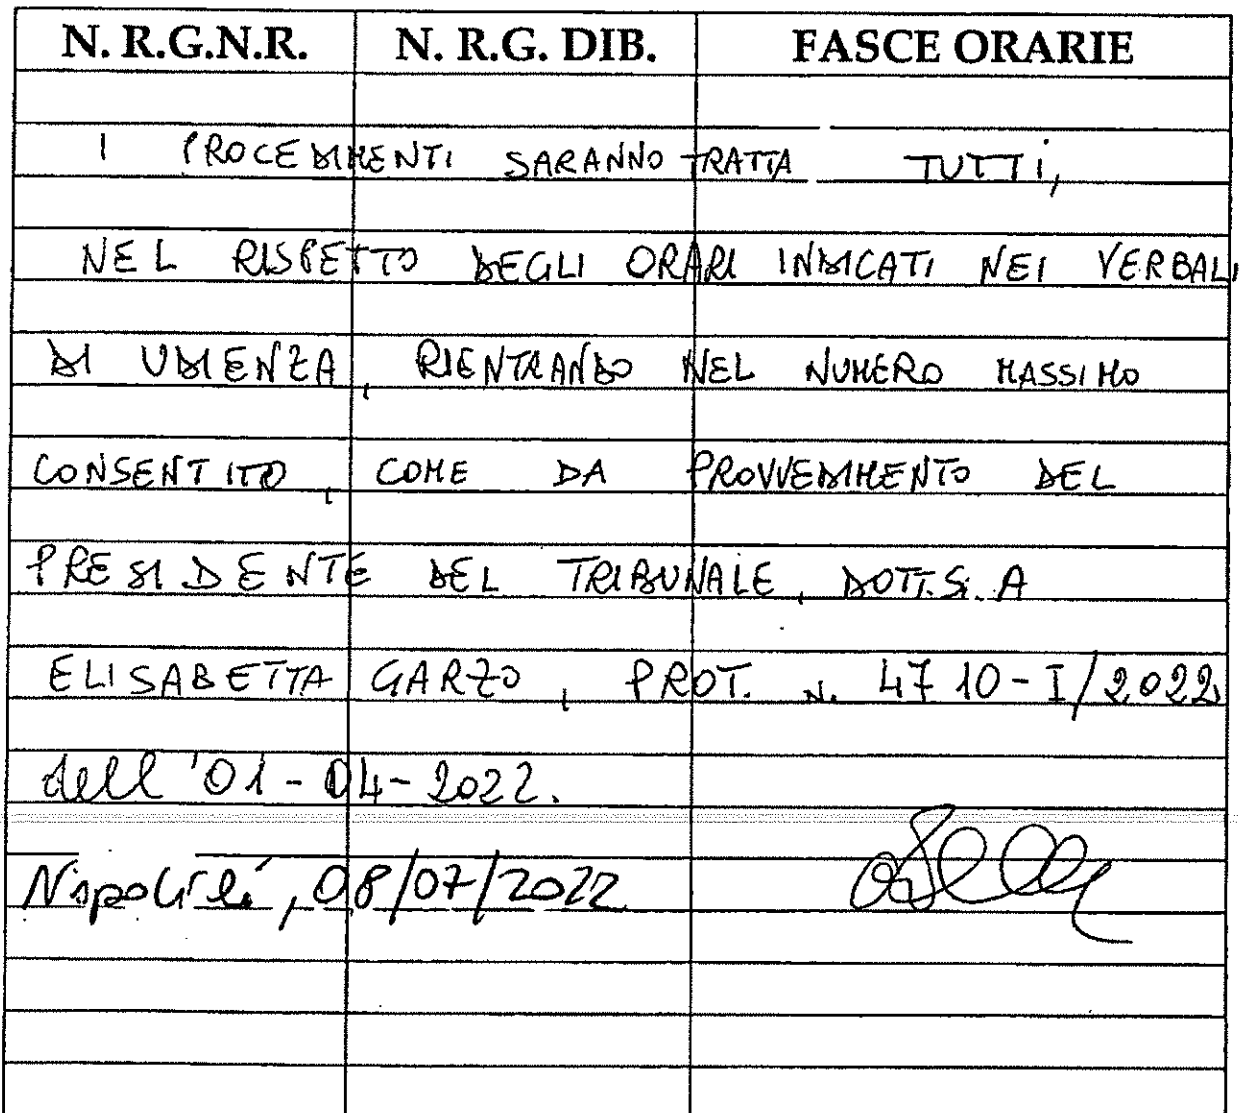 N. R.G.N.R. N. R.G. DIB. FASCE ORARIE
I PROCEDIMENTI SARANNO TRATTA TUTTI,
NEL RISPETTO DEGLI ORARI INDICATI NEI VERBALI
DI UDIENZA, RIENTRANDO NEL NUMERO MASSIMO
CONSENTITO, COME DA PROVVEDIMENTO DEL
PRESIDENTE DEL TRIBUNALE, DOTT.SSA
ELISABETTA GARZO, PROT. N. 4710-I/2022
dell'01-04-2022.
, 08/07/2022